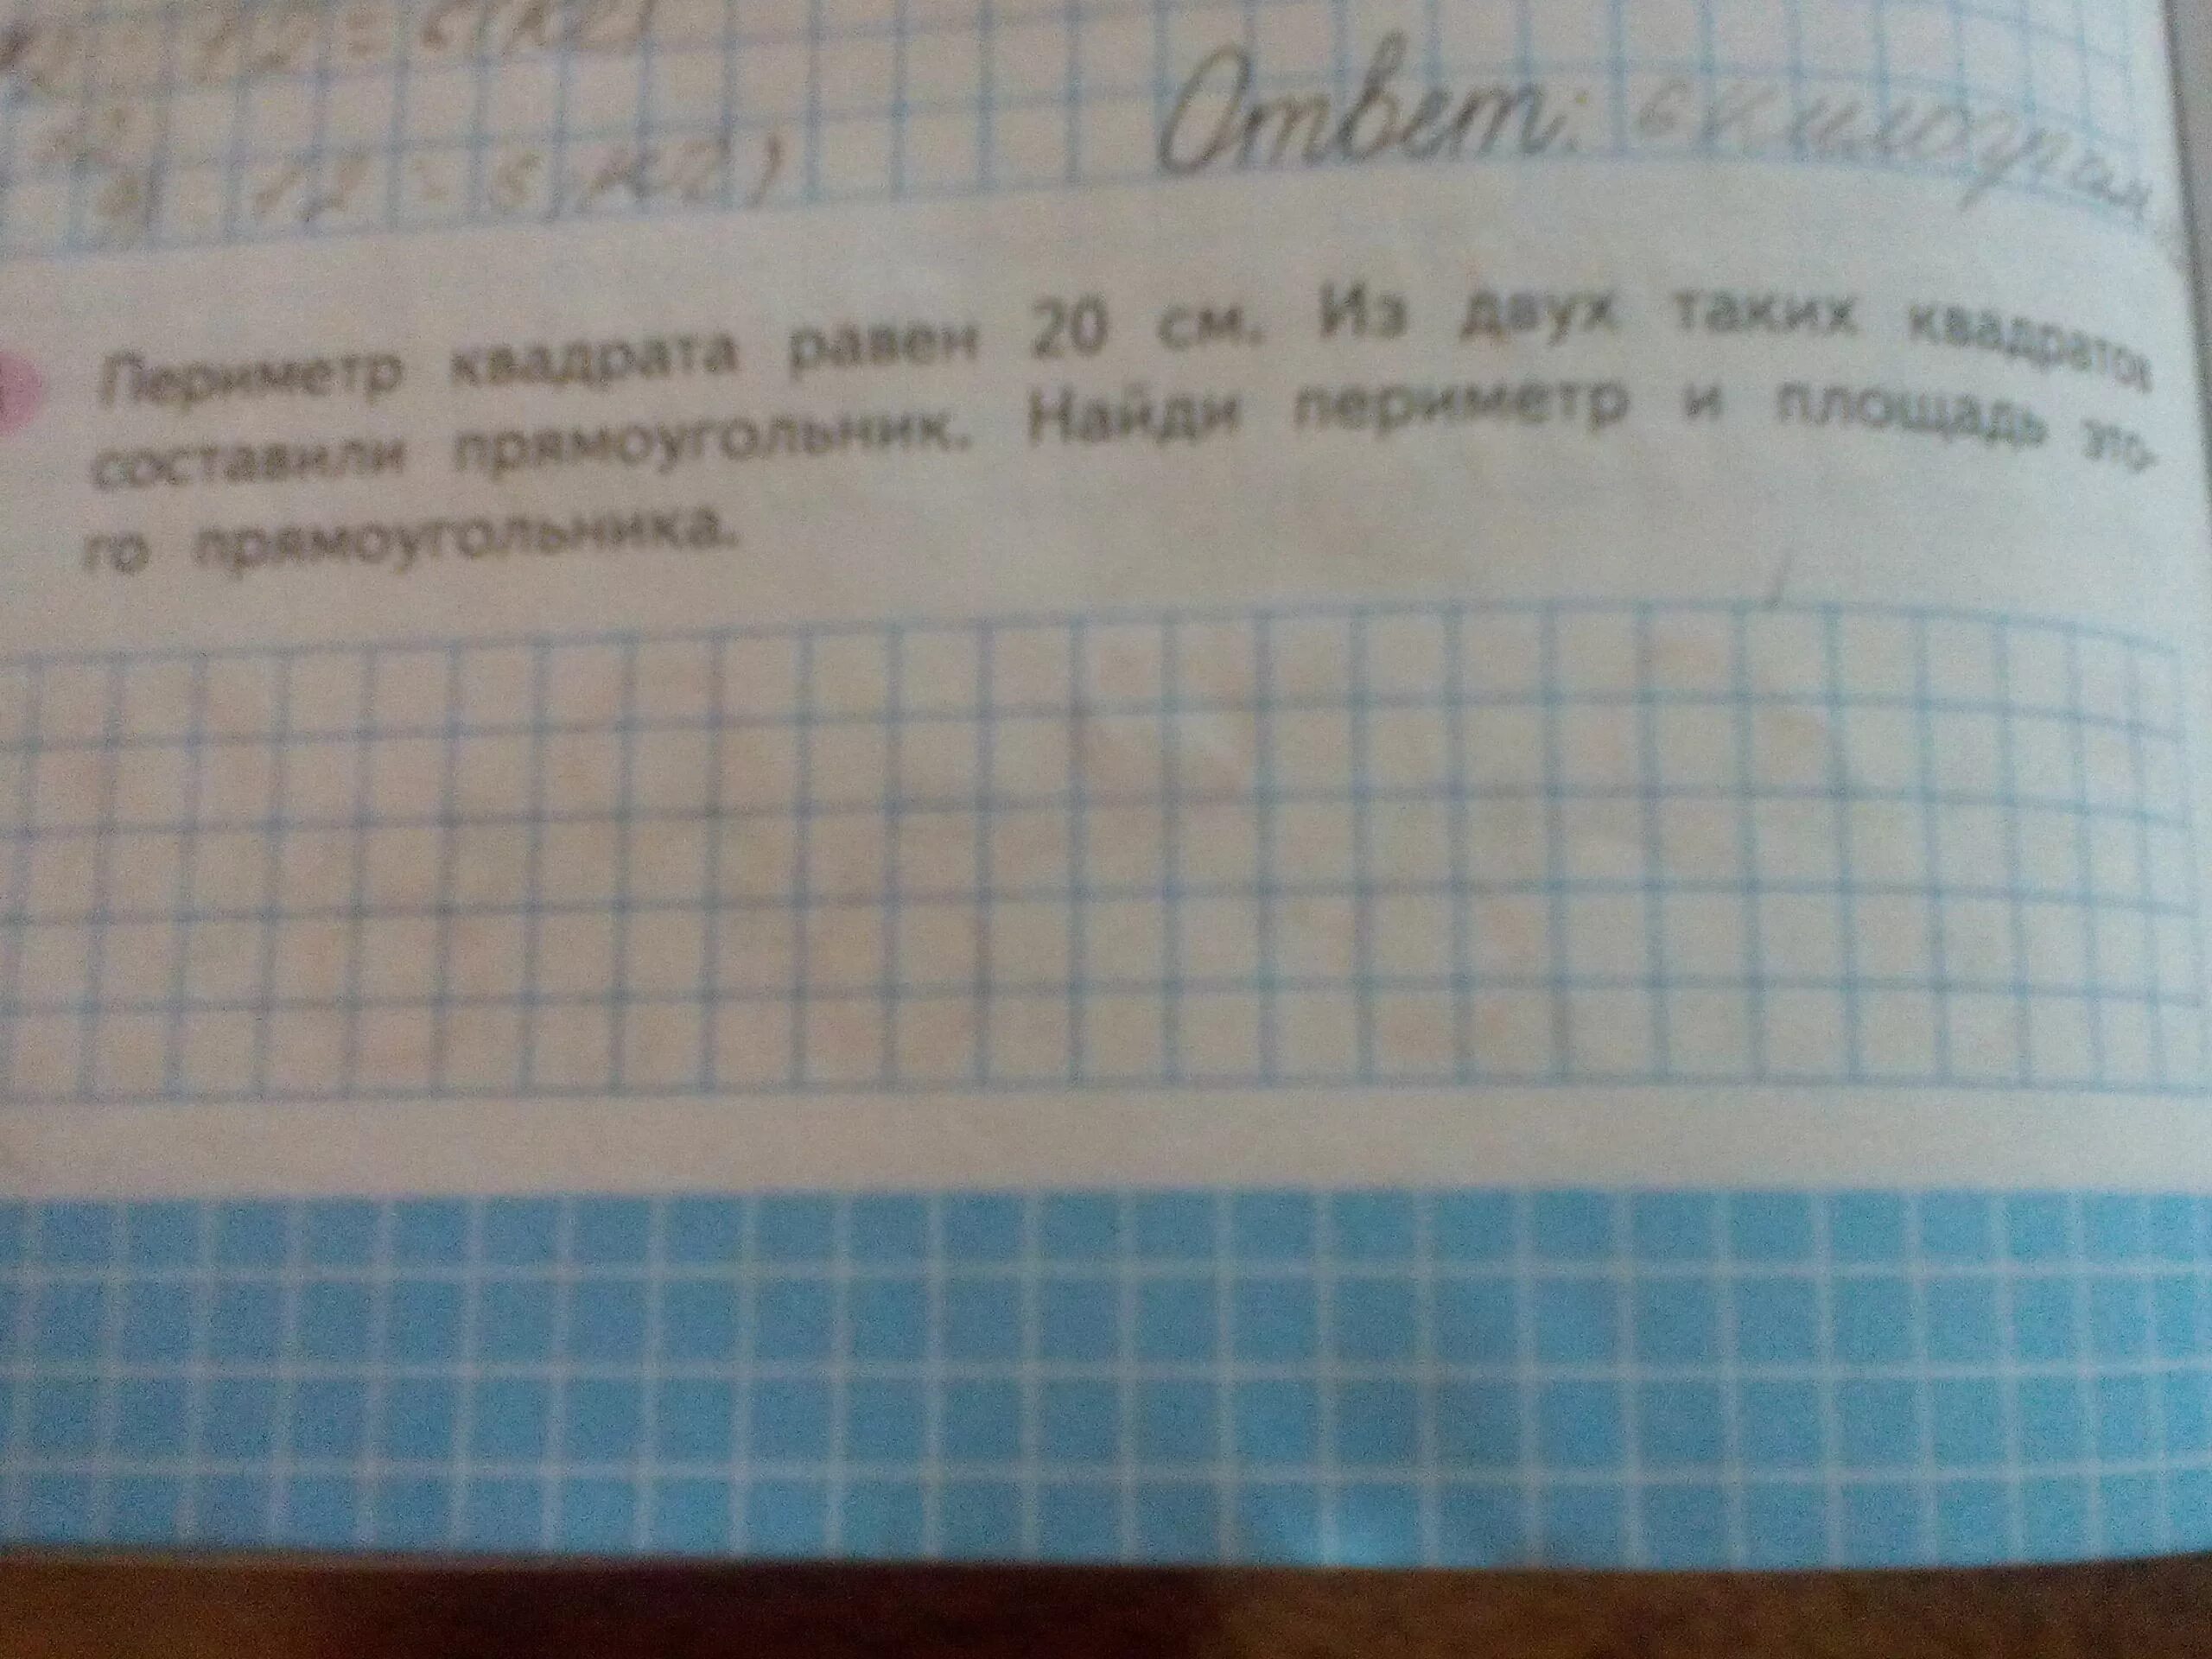 Ответ: 6 килограм
Периметр квадрата равен 20 см. Из двух таких квадратов
составили прямоугольник. Найди периметр и площадь это-
го прямоугольника.